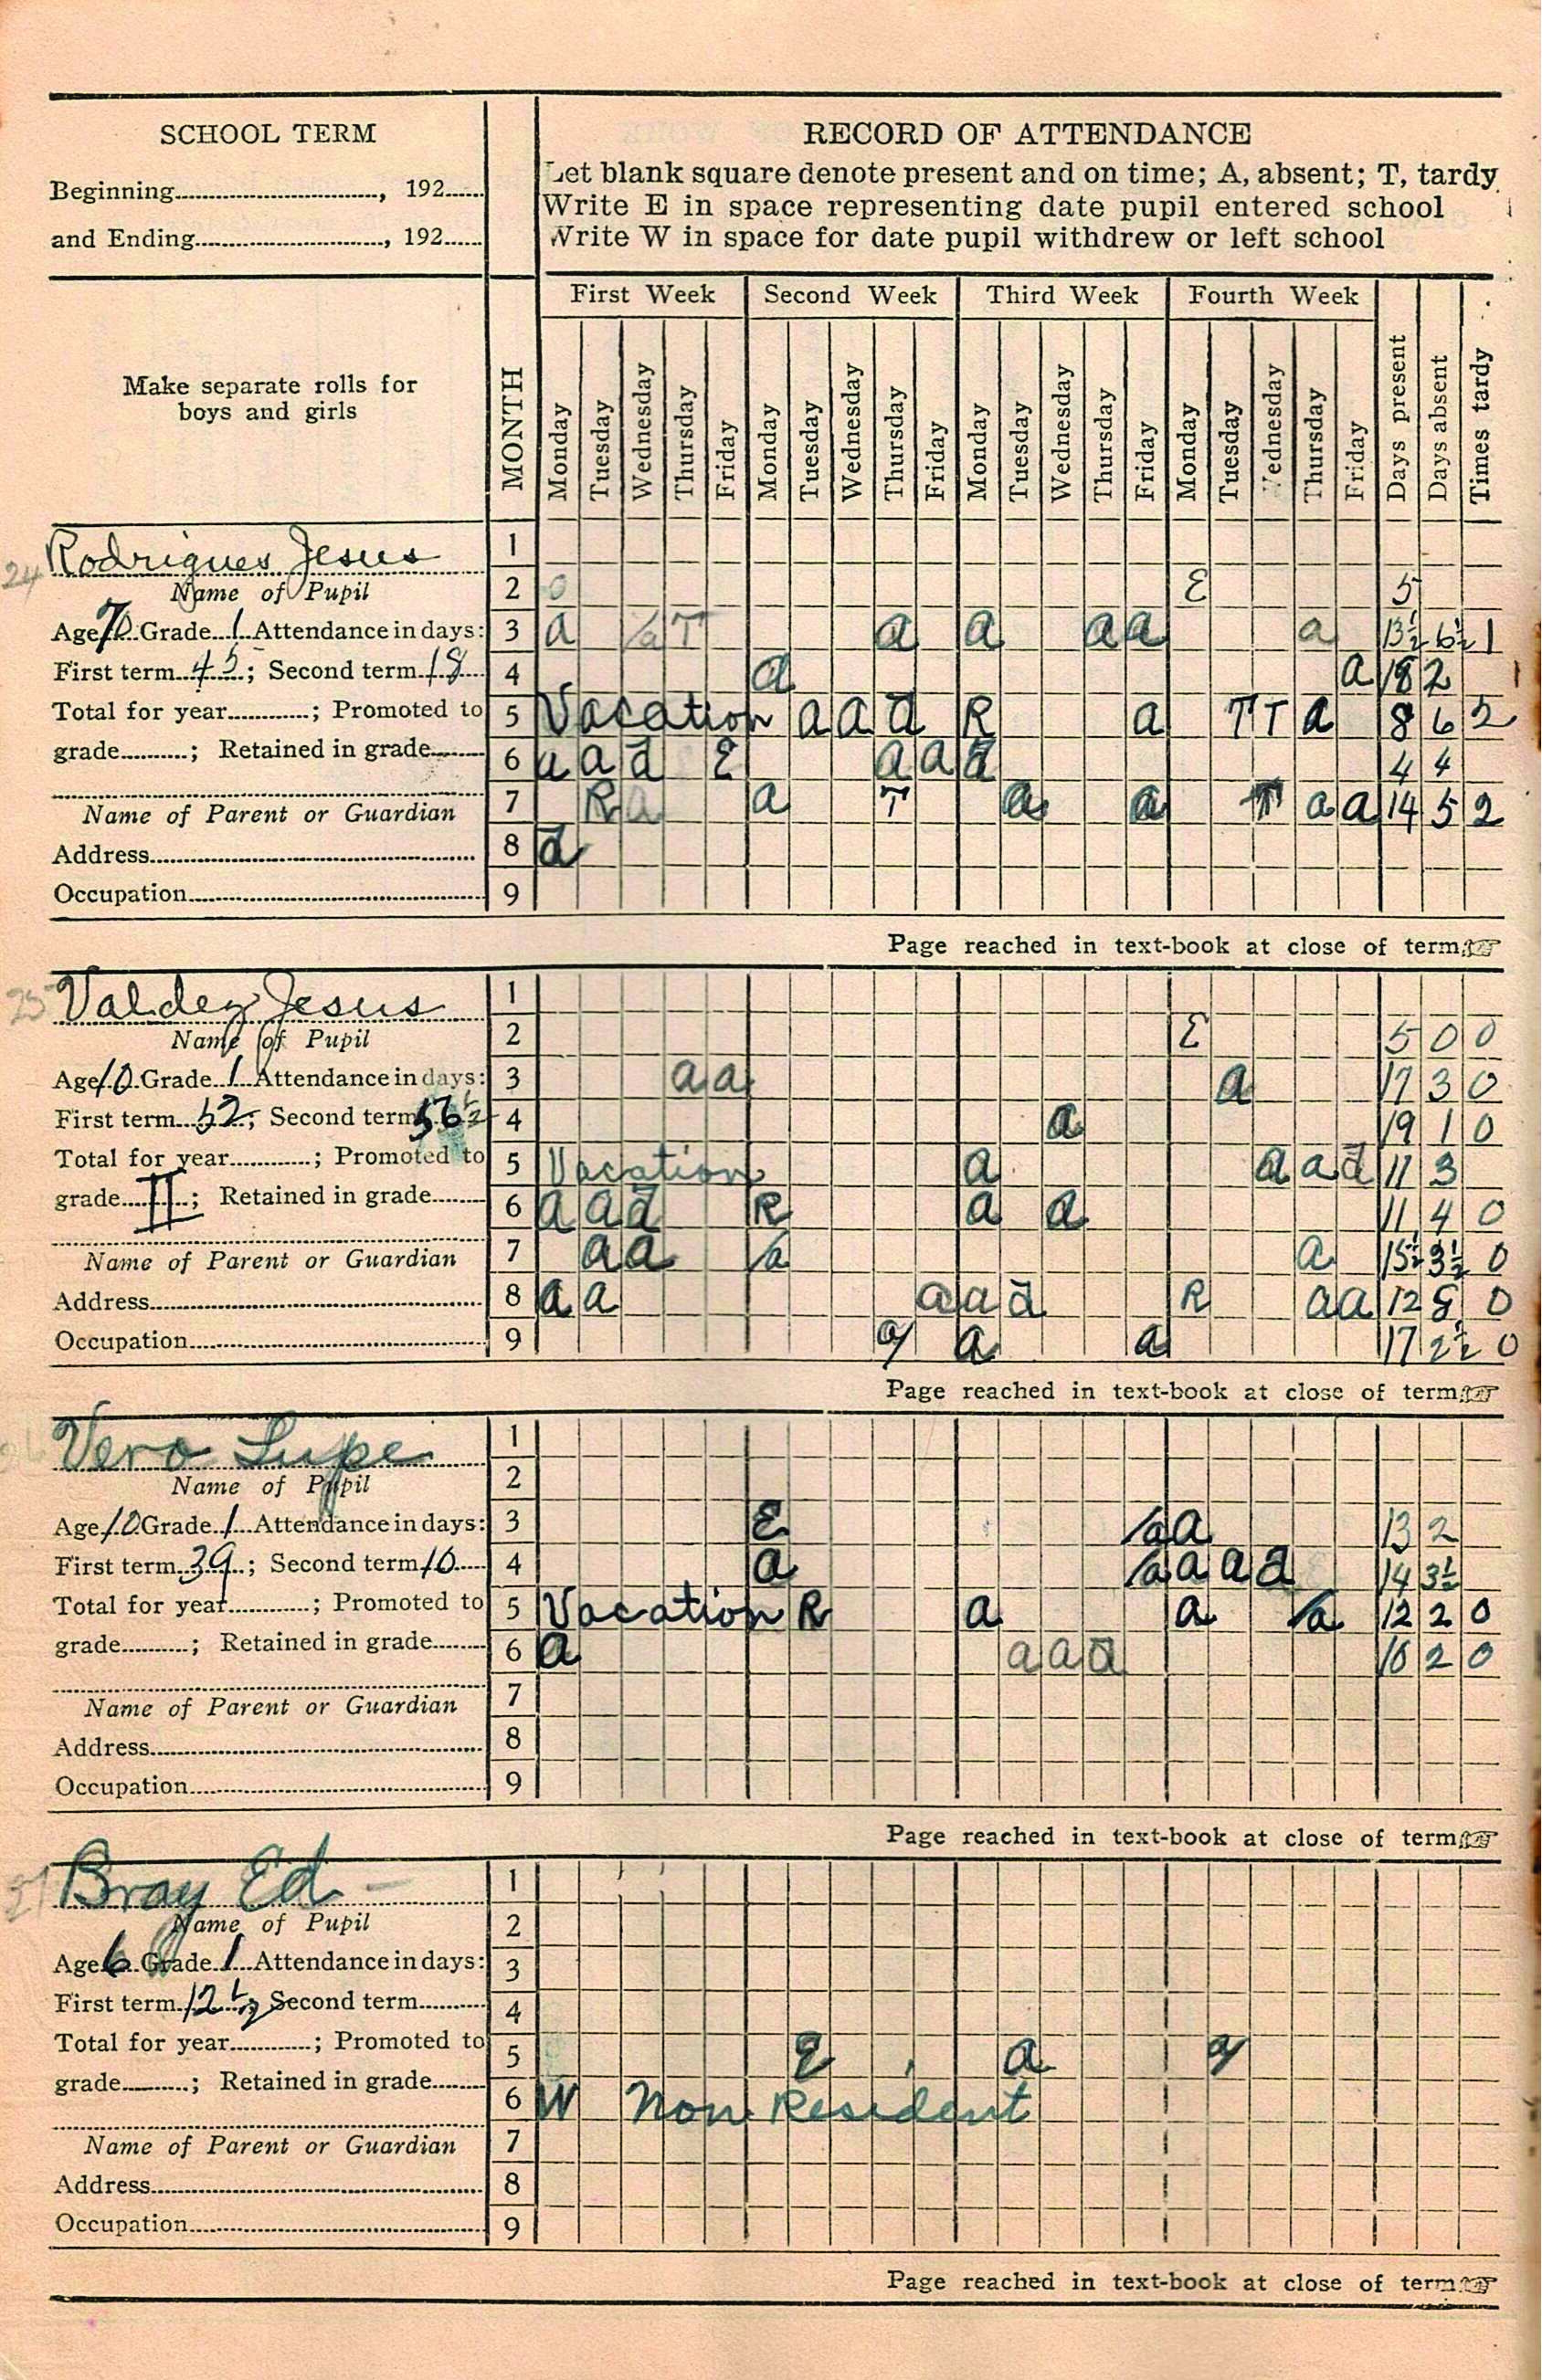 SCHOOL TERM
Beginning, 192
and Ending, 192
RECORD OF ATTENDANCE
Let blank square denote present and on time; A, absent; T, tardy
Write E in space representing date pupil entered school
Write W in space for date pupil withdrew or left school
Make separate rolls for
boys and girls
MONTH
First Week Second Week Third Week Fourth Week
Monday Tuesday Wednesday Thursday Friday Monday Tuesday Wednesday Thursday Friday Monday Tuesday Wednesday Thursday Friday Monday Tuesday Wednesday Thursday Friday Days present Days absent Times tardy
24 Rodrigues Jesus
Name of Pupil
Age 7 Grade 1 Attendance in days:
First term 45; Second term 18
Total for year; Promoted to
grade; Retained in grade
Name of Parent or Guardian
Address
Occupation
1
2 E 5
3 a a T a a a a a 13½ 6½ 1
4 a a 18 2
5 Vacation a a a R a T T a 8 6 2
6 a a a E a a a 4 4
7 R a a T a a T a a 14 5 2
8 a
9
Page reached in text-book at close of term
25 Valdez Jesus
Name of Pupil
Age 10 Grade 1 Attendance in days:
First term 52; Second term 56½
Total for year; Promoted to
grade II; Retained in grade
Name of Parent or Guardian
Address
Occupation
1
2 E 5 0 0
3 a a a 17 3 0
4 a 19 1 0
5 Vacation a a a a 11 3
6 a a a R a a 11 4 0
7 a a a a 15½ 3½ 0
8 a a a a a R a a 12 8 0
9 a a a 17 2½ 0
Page reached in text-book at close of term
Vero Lupe
Name of Pupil
Age 10 Grade 1 Attendance in days:
First term 39; Second term 10
Total for year; Promoted to
grade; Retained in grade
Name of Parent or Guardian
Address
Occupation
1
2
3 E a a 13 2
4 a a a a a 14 3½
5 Vacation R a a a 12 2 0
6 a a a a 10 2 0
7
8
9
Page reached in text-book at close of term
27 Bray Ed
Name of Pupil
Age 6 Grade 1 Attendance in days:
First term 12½; Second term
Total for year; Promoted to
grade; Retained in grade
Name of Parent or Guardian
Address
Occupation
1
2
3
4
5 E a a
6 W Non Resident
7
8
9
Page reached in text-book at close of term